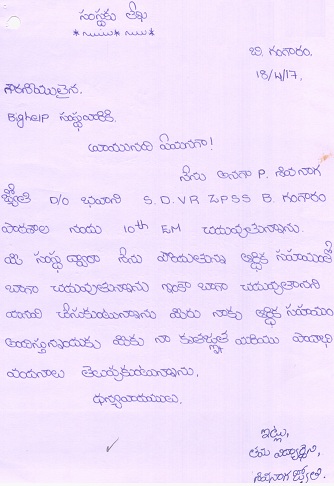 సంస్థకు లేఖ
బి. గంగారం.
18/4/17.
గౌరవనీయులైన.
BigheIP సంస్థవారికి.
వ్రాయునది ఏమనగా!
నేను అనగా P. శివ నాగ
జ్యోతి D/O భవాని S.D.VR ZPSS B. గంగారం
పాఠశాల నందు 10th EM చదువుతున్నాను.
మీ సంస్థ ద్వారా నేను పొందుతున్న ఆర్థిక సహాయంతో
బాగా చదువుతున్నాను ఇంకా బాగా చదువుతానని
మనవి చేసుకుంటున్నాను మీరు నాకు ఆర్థిక సహాయం
అందిస్తున్నందుకు మీకు నా కృతజ్ఞత మరియు పాదాభి
వందనాలు తెలుపుకుంటున్నాను.
ధన్యవాదములు.
ఇట్లు,
తమ విద్యార్థిని,
శివనాగజ్యోతి.